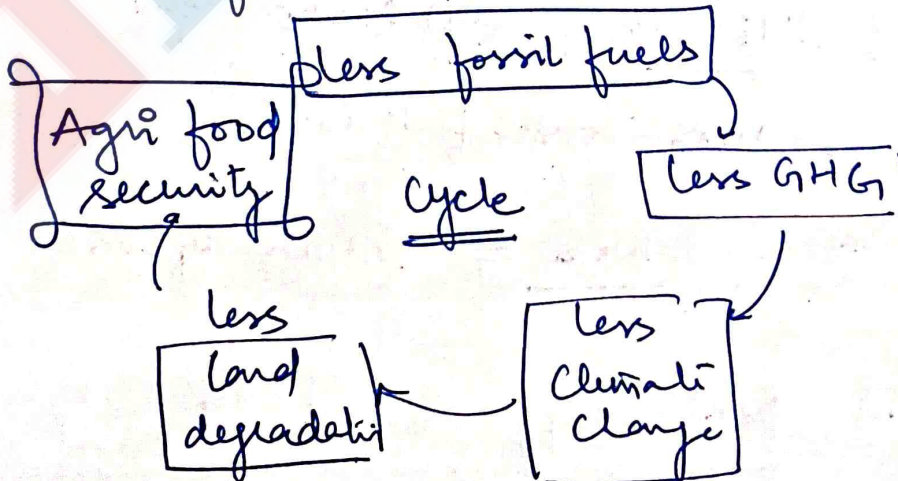 less fossil fuels
Agri food
security
Cycle
less GHG
less
Climate
Change
less
land
degradation